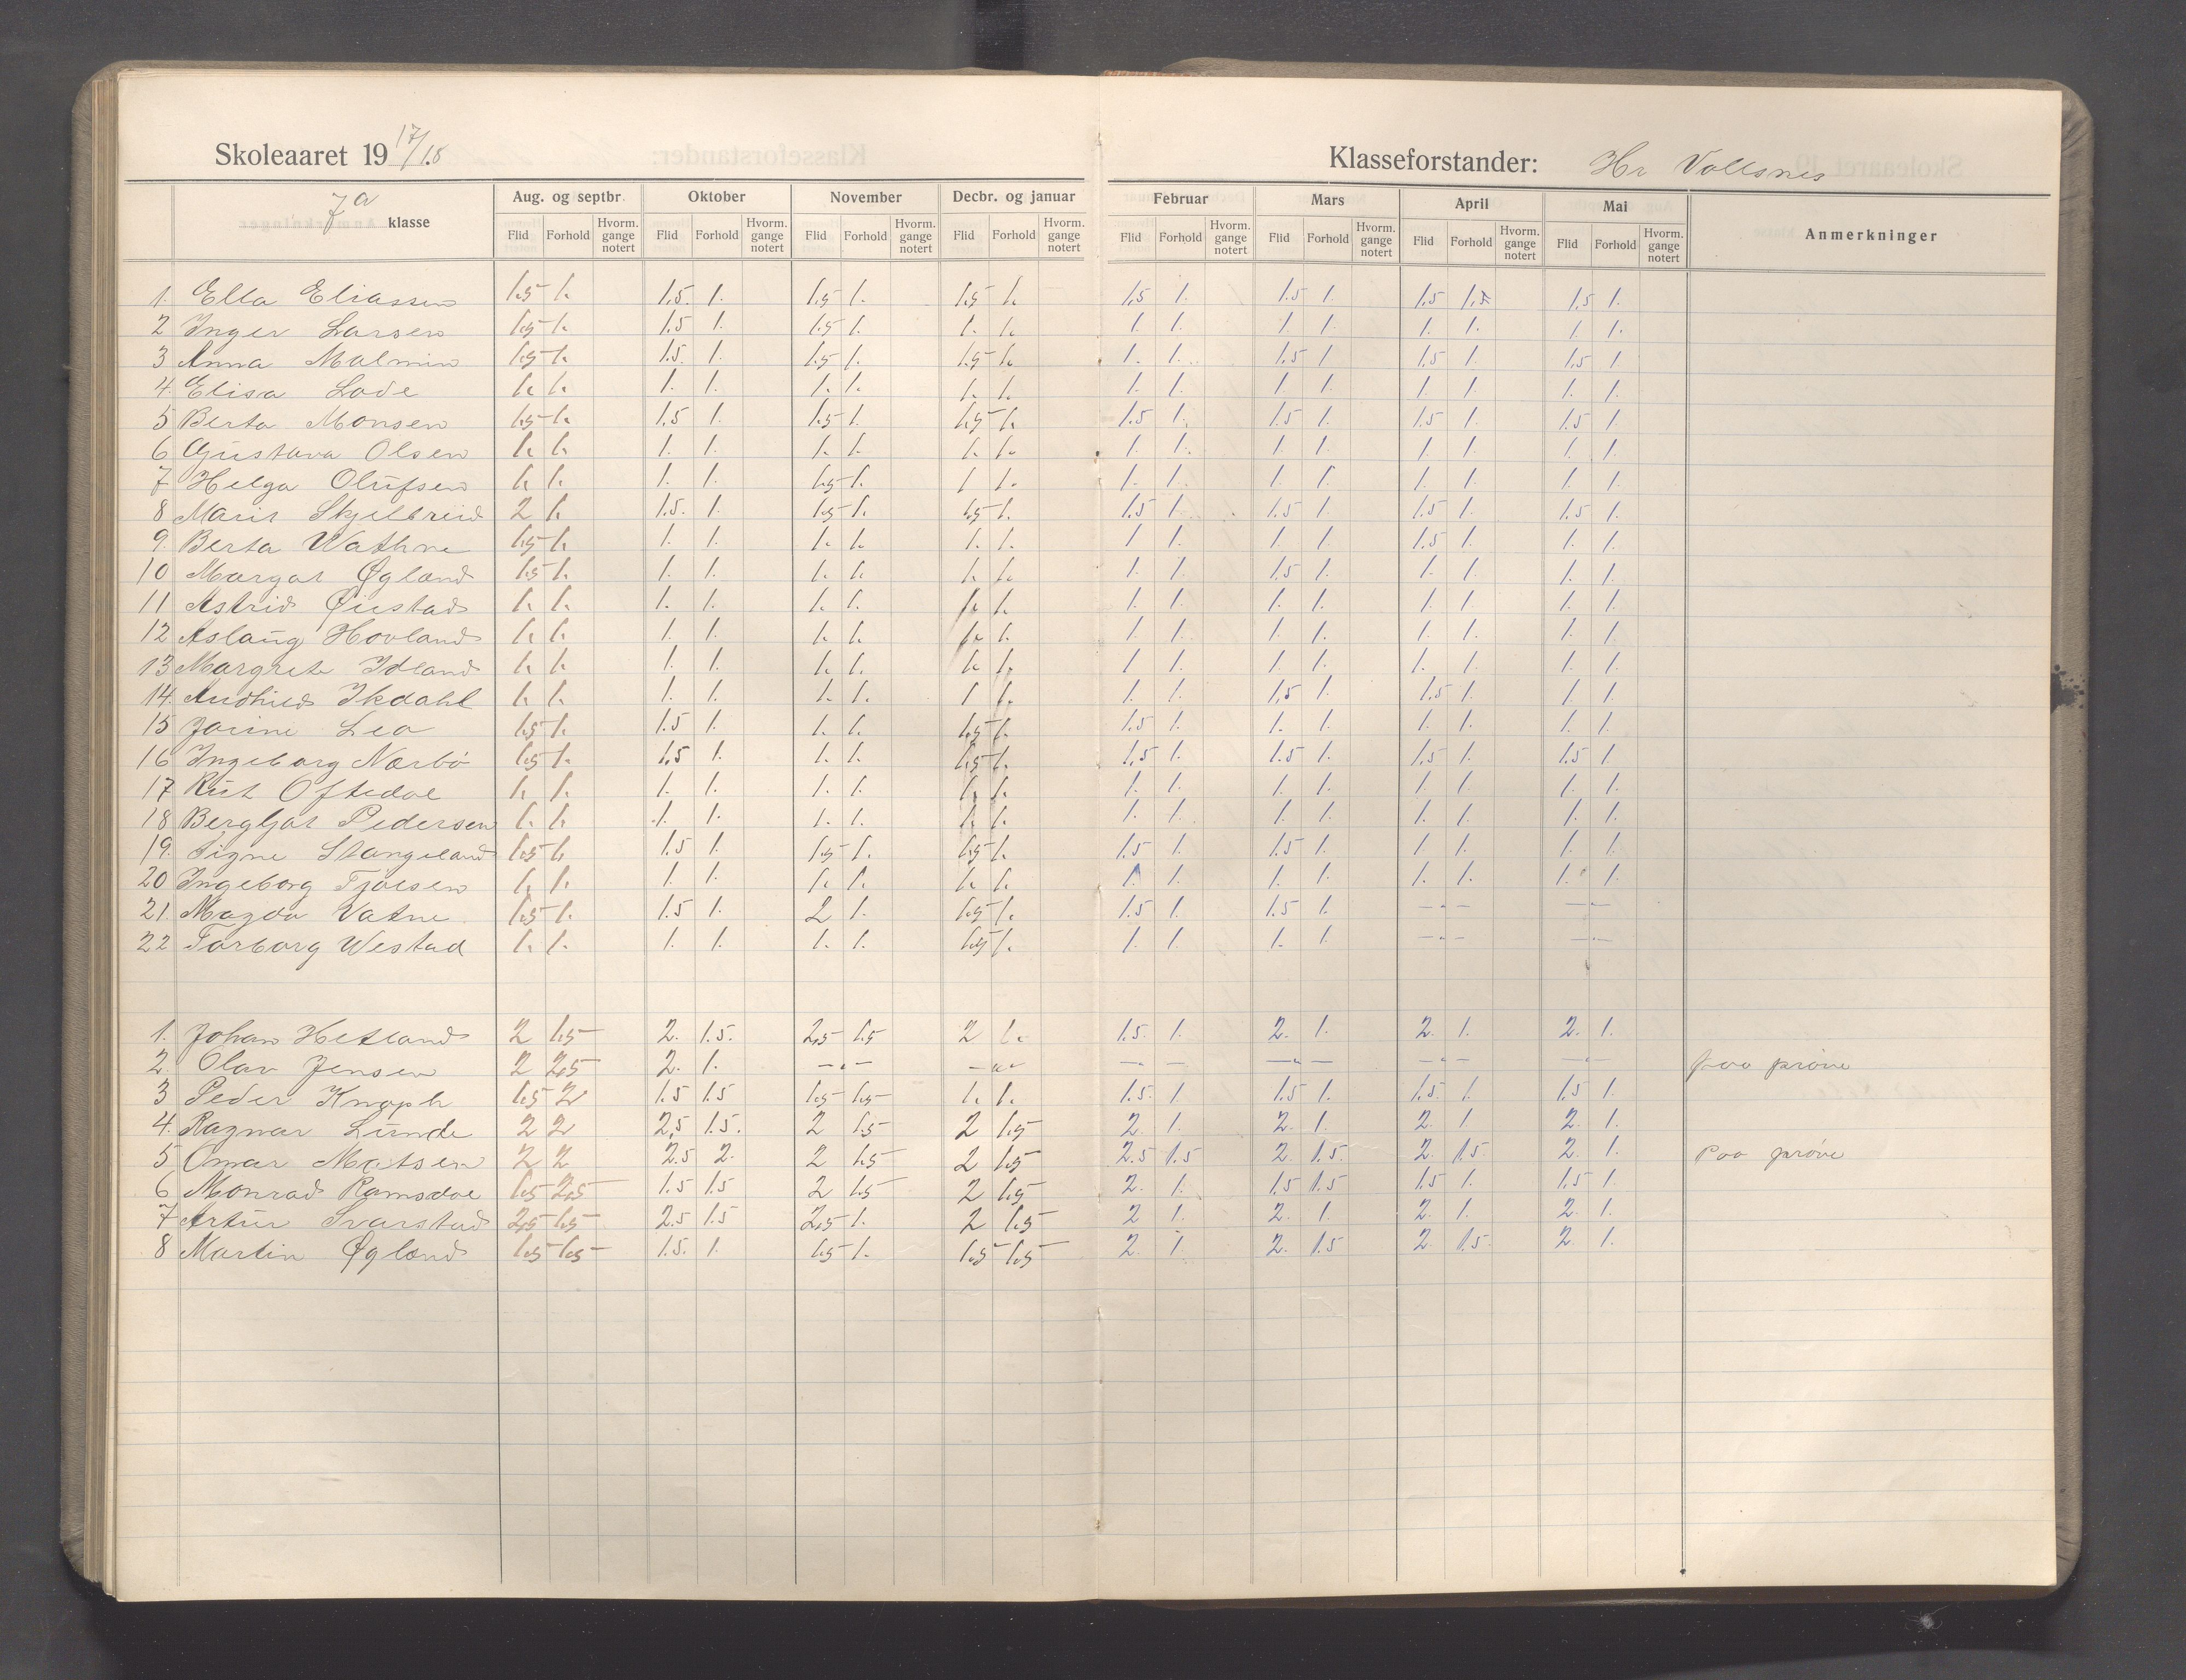 Skoleaaret 19 17/18
Klasseforstander: Hr Vollsnes
7a klasse
Aug. og septbr. Oktober November Decbr. og januar Februar Mars April Mai Anmerkninger
Flid Forhold Hvorm. gange notert Flid Forhold Hvorm. gange notert Flid Forhold Hvorm. gange notert Flid Forhold Hvorm. gange notert Flid Forhold Hvorm. gange notert Flid Forhold Hvorm. gange notert Flid Forhold Hvorm. gange notert Flid Forhold Hvorm. gange notert
1. Ella Eliassen 1.5 1. 1.5. 1. 1.5 1. 1.5 1. 1,5 1. 1.5 1. 1,5 1,5 1,5 1.
2 Inger Larsen 1.5 1. 1.5 1. 1.5 1. 1. 1. 1. 1. 1. 1. 1. 1. 1. 1.
3 Anna Malmin 1.5 1. 1.5. 1. 1.5 1. 1.5 1. 1. 1. 1.5 1 1,5 1. 1,5 1
4. Elisa Lode 1. 1. 1. 1. 1. 1. 1. 1. 1. 1. 1. 1. 1. 1. 1. 1.
5 Berta Monsen 1.5 1. 1,5 1. 1.5 1. 1.5 1. 1.5 1. 1.5 1. 1.5 1. 1.5 1.
6 Gustava Olsen 1. 1. 1. 1. 1. 1. 1. 1. 1. 1. 1. 1. 1. 1. 1. 1.
7 Helga Olufsen 1. 1. 1. 1. 1.5 1. 1 1. 1. 1. 1. 1. 1. 1. 1. 1.
8 Marit Skjelbreid 2 1. 1.5. 1. 1.5 1. 1.5 1. 1.5 1. 1.5 1. 1.5 1. 1.5 1.
9. Berta Wathne 1.5 1. 1. 1. 1. 1. 1. 1. 1 1. 1 1. 1.5 1. 1. 1.
10 Margot Øgland 1.5 1. 1. 1. 1. 1. 1. 1. 1. 1. 1.5 1. 1. 1. 1. 1.
11 Astrid Øiestad 1. 1. 1. 1. 1. 1. 1. 1. 1. 1. 1. 1. 1. 1. 1. 1.
12 Aslaug Hovland 1. 1. 1. 1. 1. 1. 1. 1. 1. 1. 1. 1. 1. 1. 1. 1.
13 Margrete Idland 1. 1. 1. 1. 1. 1. 1. 1. 1 1. 1. 1. 1. 1. 1. 1.
14. Ikdahl 1. 1. 1. 1. 1. 1. 1 1. 1. 1. 1,5 1. 1,5 1. 1. 1.
15 Lea 1.5 1. 1.5 1. 1. 1. 1.5 1. 1.5 1. 1. 1. 1. 1. 1. 1.
16 Ingeborg Nærbø 1.5 1. 1,5 1. 1. 1. 1.5 1. 1,5 1. 1.5 1. 1,5 1. 1.5 1.
17 Rut Oftedal 1. 1. 1. 1. 1. 1. 1. 1. 1. 1. 1. 1. 1. 1. 1. 1.
18 Bergljot Pedersen 1. 1. 1. 1. 1. 1. 1. 1. 1. 1. 1. 1. 1. 1. 1. 1.
19. Signe Stangeland 1.5 1. 1.5 1. 1.5 1. 1.5 1. 1.5 1. 1.5 1. 1. 1. 1. 1.
20 Ingeborg Tjoesen 1. 1. 1. 1. 1. 1. 1. 1. 1. 1. 1. 1. 1. 1. 1. 1.
21. Magda Vatne 1.5 1. 1.5 1. 2 1. 1.5 1. 1.5 1. 1.5 1. —"— —"—
22 Torborg Westad 1. 1. 1. 1. 1. 1. 1.5 1. 1. 1. 1. 1. —"— —"—
1. Johan Hetland 2 1.5 2. 1.5. 2,5 1.5 2 1. 1.5 1. 2. 1. 2. 1. 2. 1.
2. Olav Jensen 2 2,5 2. 1. —"— —"— —"— —"— —"— —"— paa prøve
3 Peder Knoph 1.5 2 1.5 1.5 1.5 1.5 1. 1. 1.5. 1. 1.5 1. 1.5. 1. 1,5 1.
4. Ragnar Lunde 2 2 2,5 1.5. 2 1.5 2 1.5 2. 1. 2. 1. 2. 1 2. 1.
5 Omar Matsen 2 2 2.5 2. 2 1.5 2 1.5 2.5 1.5 2. 1.5. 2. 1.5. 2. 1. Paa prøve
6 Monrad Ramsdal 1.5 2,5 1.5 1.5 2 1.5 2 1.5 2. 1. 1.5 1.5 1.5 1. 1.5 1.
7 Artur Svarstad 2,5 1.5 2.5 1.5 2,5 1. 2 1.5 2 1. 2. 1. 2. 1. 2. 1.
8 Martin Øgland 1.5 1.5 1.5. 1. 1.5 1. 1.5 1.5 2. 1. 2. 1.5 2. 1.5. 2. 1.